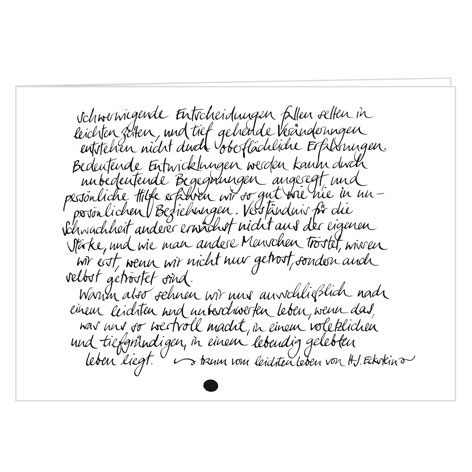 schwerwiegende Entscheidungen fallen selten in
leichten Zeiten, und tief gehende Veränderungen
entstehen nicht durch oberflächliche Erfahrungen.
Bedeutende Entwicklungen werden kaum durch
unbedeutende Begegnungen angeregt und
persönliche Hilfe erfahren wir so gut wie nie in un-
persönlichen Beziehungen. Verständnis für die
Schwachheit anderer erwächst nicht aus der eigenen
Stärke, und wie man andere Menschen tröstet, wissen
wir erst, wenn wir nicht nur getrost, sondern auch
selbst getröstet sind.
Warum also sehnen wir uns ausschließlich nach
einem leichten und unbeschwerten Leben, wenn das,
was uns so wertvoll macht, in einem verletzlichen
und tiefgründigen, in einem lebendig gelebten
Leben liegt. traum vom leichten leben von H.J. Eckstein